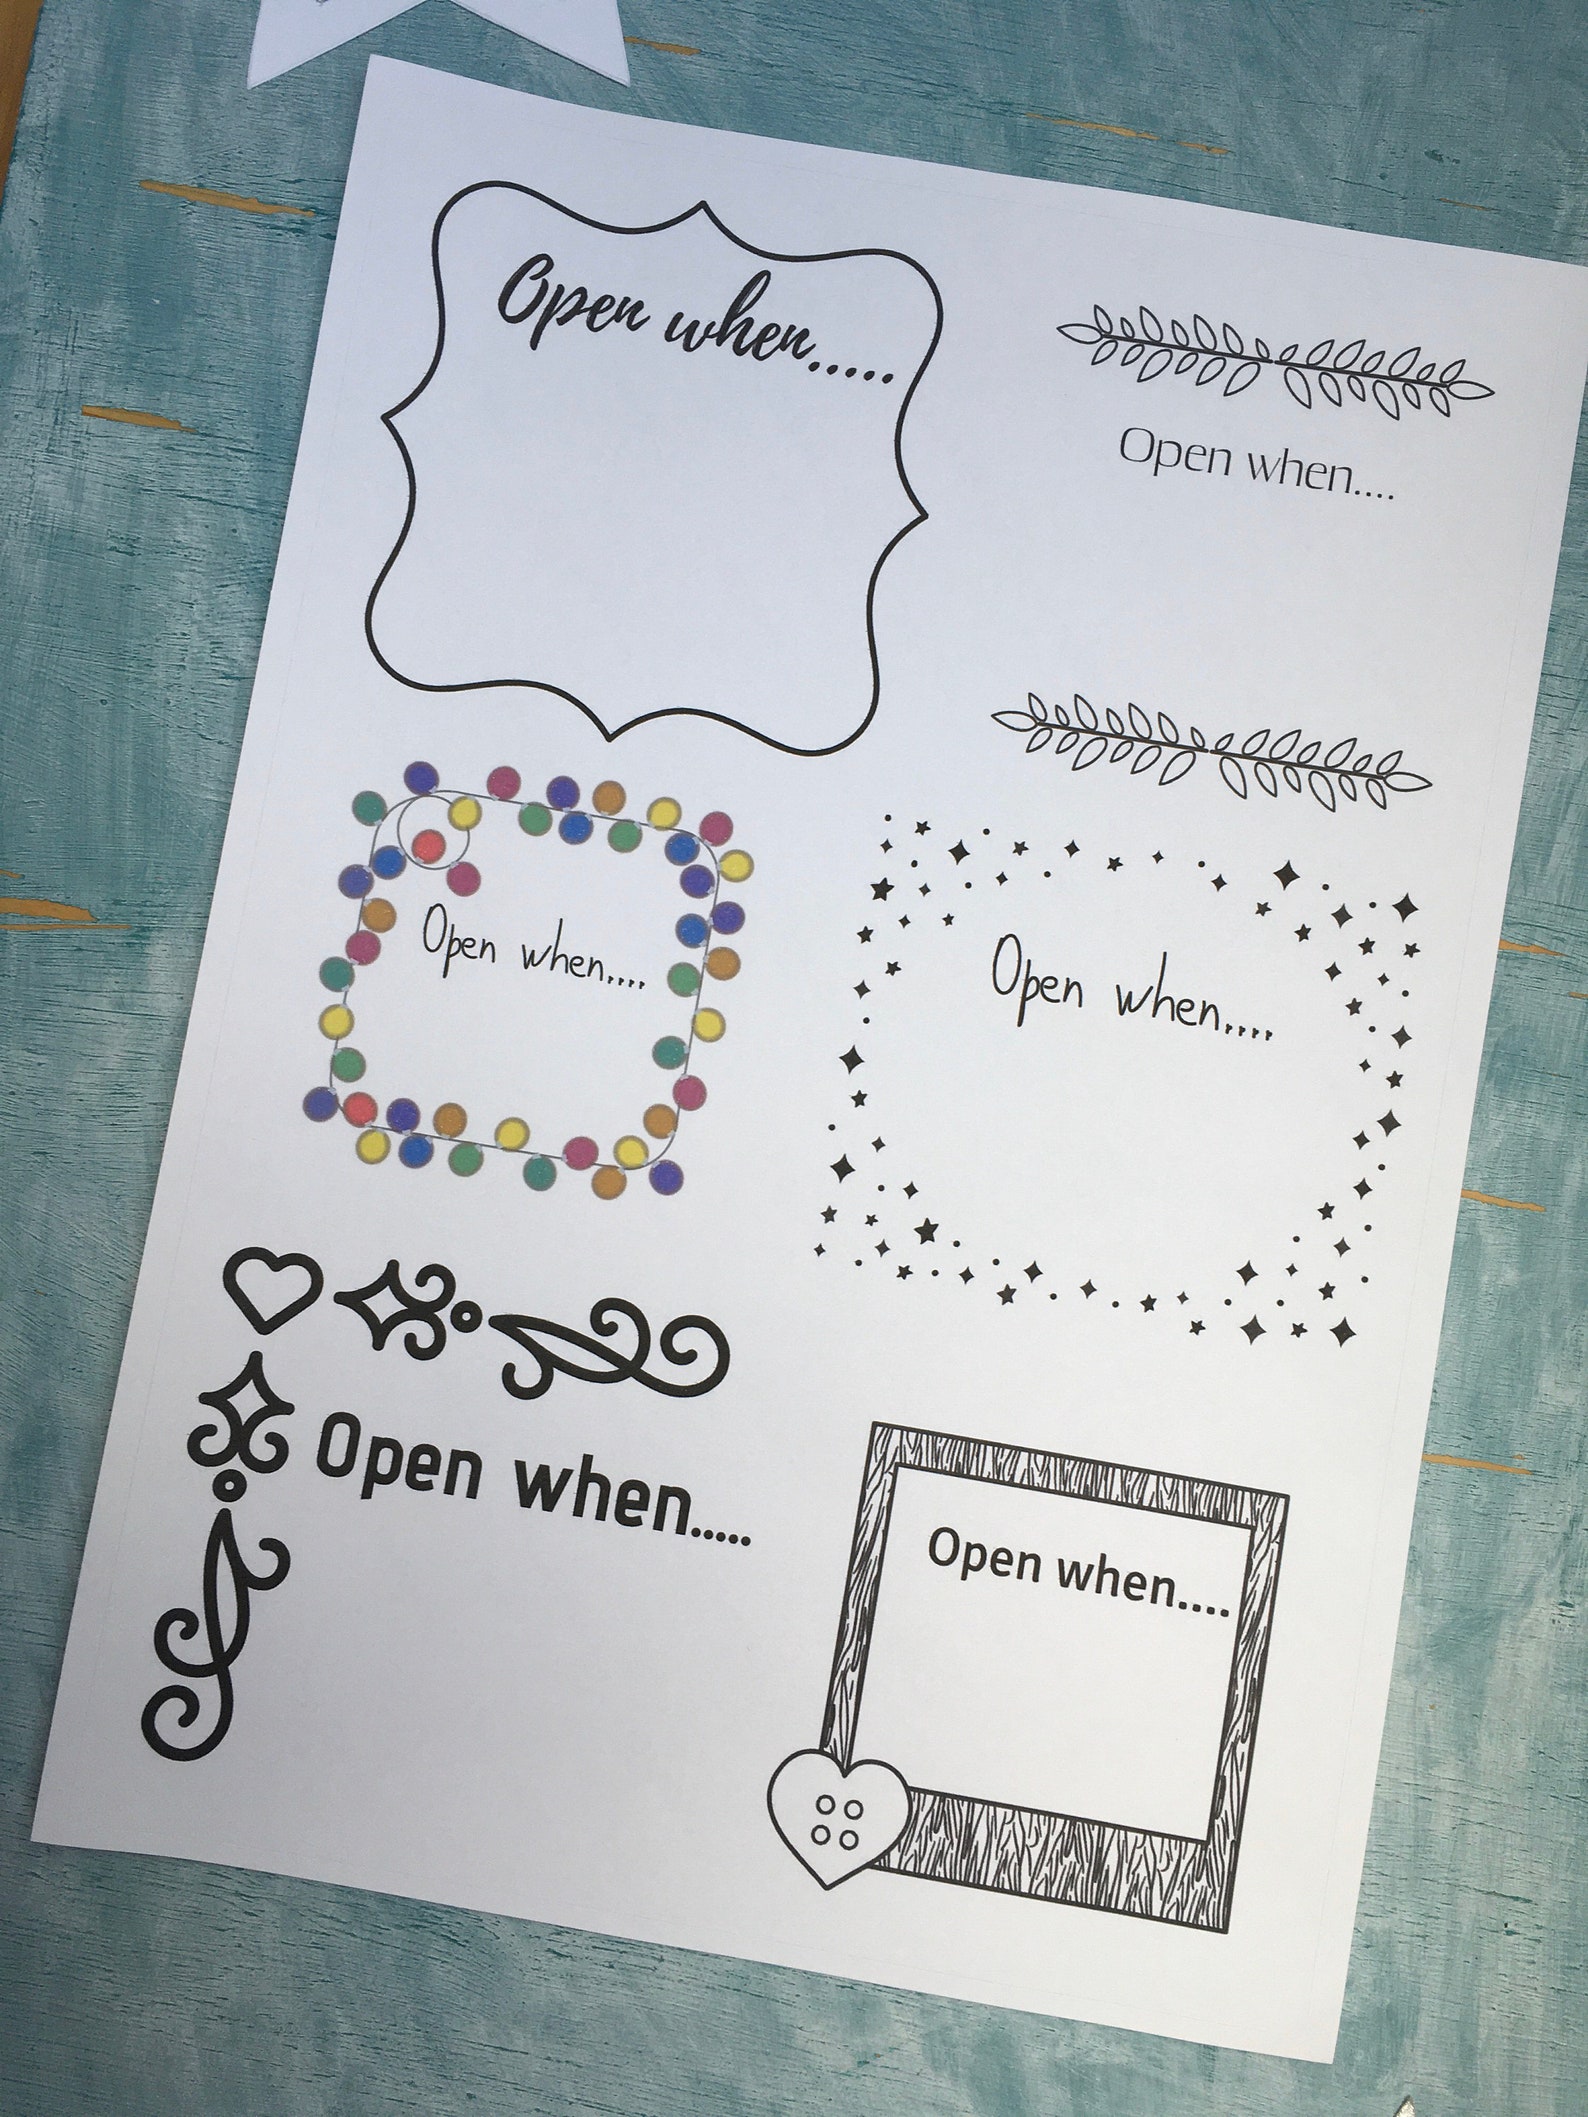 Open when.....
Open when....
Open when....
Open when....
Open when.....
Open when....